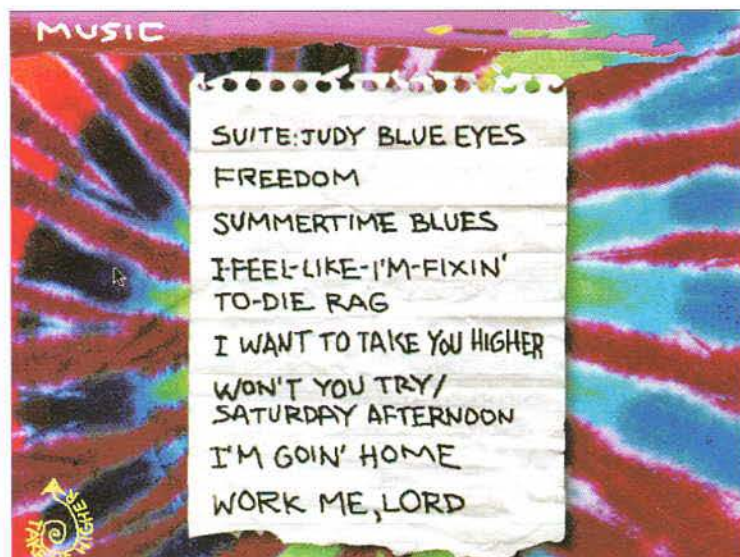 MUSIC
SUITE: JUDY BLUE EYES
FREEDOM
SUMMERTIME BLUES
I-FEEL-LIKE-I'M-FIXIN'
TO-DIE RAG
I WANT TO TAKE YOU HIGHER
WON'T YOU TRY/
SATURDAY AFTERNOON
I'M GOIN' HOME
WORK ME, LORD
HIGHER